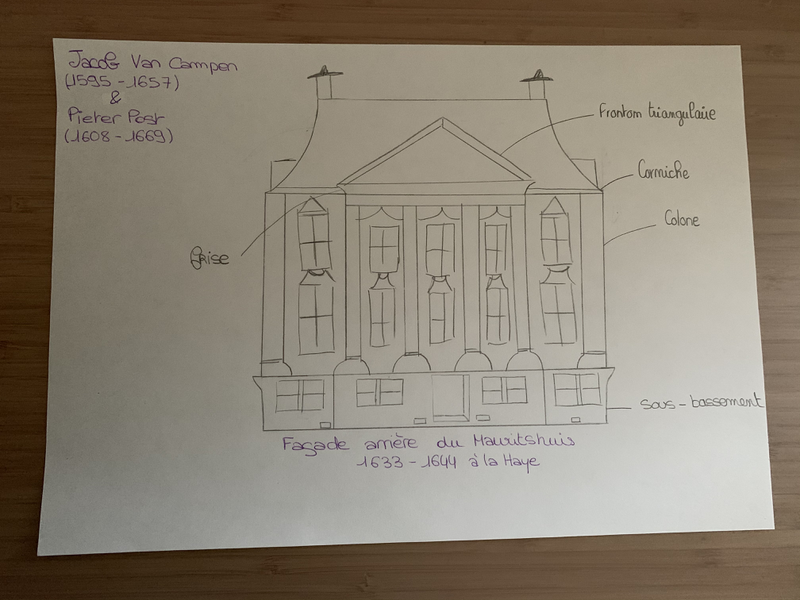 Jacob Van Campen
(1595 - 1657)
&
Pieter Post
(1608 - 1669)
Frontom triangulaire
Corniche
Colone
frise
sous-bassement
Façade arrière du Mauritshuis
1633 - 1644 à la Haye